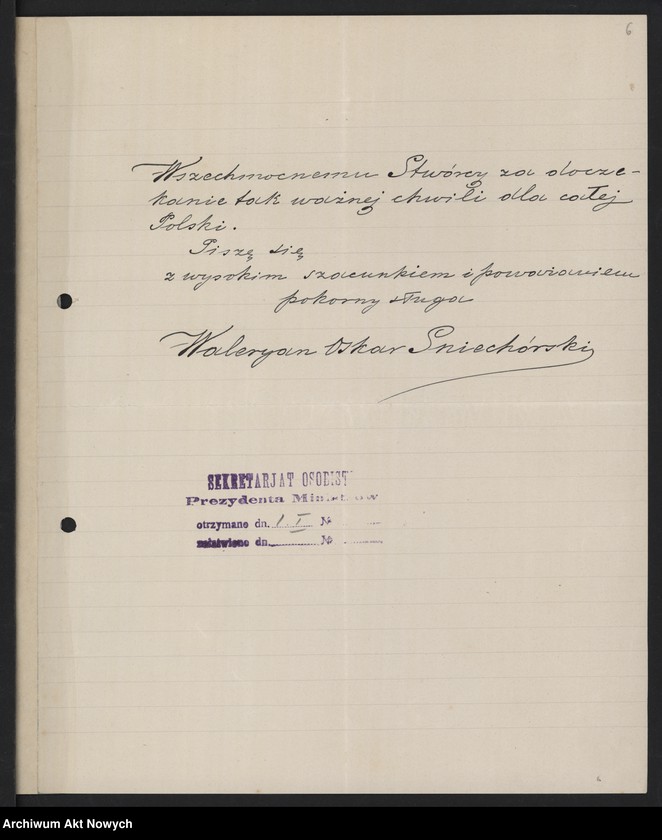 6
Wszechmocnemu Stwórcy za docze-
kanie tak ważnej chwili dla całej
Polski.
Piszę się
z wysokim szacunkiem i poważaniem
pokorny sługa
Waleryan Oskar Sniechórski
SEKRETARJAT OSOBIST
Prezydenta Ministrów
otrzymano dn. 1 I №
załatwiono dn. №
Archiwum Akt Nowych